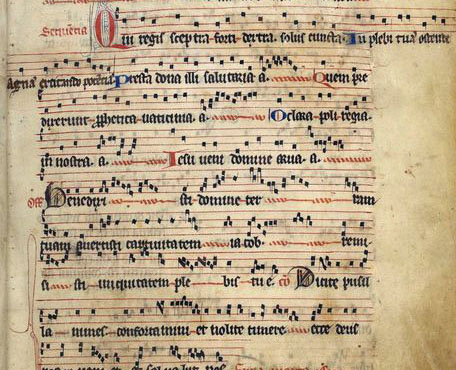 Sequentia Qui regis sceptra forti dextra solus cuncta In plebi tuā ostende
agnā excitando potētiā Presta dona illi salutaria a. Quem pre
dixerunt pphetica uaticinia a. O clara poli regia
in nostra a. Iesu ueni domine arua a.
Off Benedixi sti domine ter ram
tuam auertisti captiuitatem ia cob remi
si sti iniquitatem ple bis tu e. co Dicite pusil
la nimes confortamini et nolite timere ecce deus